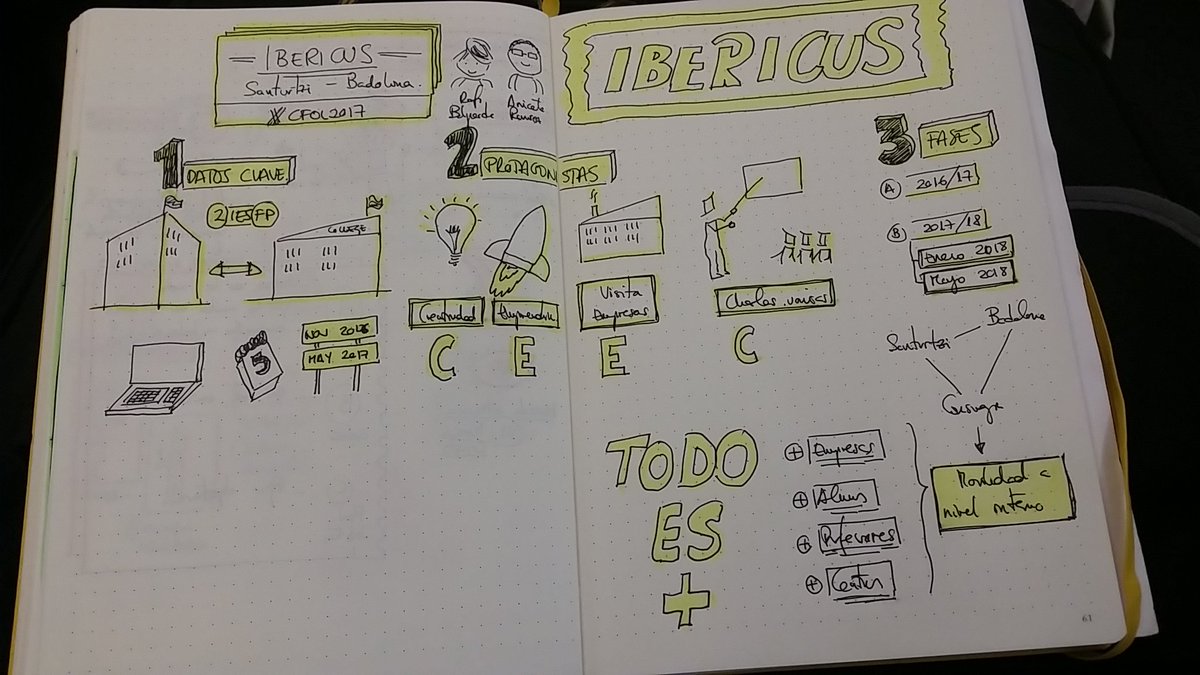 IBERICUS
Santurtzi - Badalona.
CFOL2017
Rafi
Aniceto
Ramos
IBERICUS
1 DATOS CLAVE
2 IES FP
COLLEGE
5
NOV 2016
MAY 2017
2 PROTAGONISTAS
Creatividad
C
Emprendim
E
Visita
Empresas
E
Charlas
C
3 FASES
A 2016/17
B 2017/18
Enero 2018
Mayo 2018
Santurtzi
Badalona
TODO
ES
+
+ Empresas
+ Alums
+ Profesores
+ Centros
Movilidad a
nivel interno
61